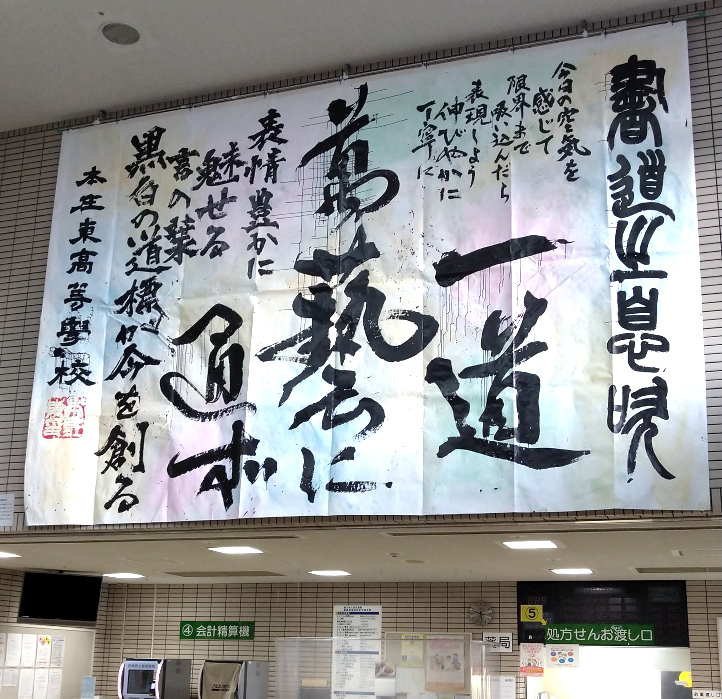 書道之息吹
今日の空気を
感じて
限界まで
吸い込んだら
表現しよう
伸びやかに
丁寧に
一道
萬藝に
通ず
表情豊かに
魅せる
言の葉
黒白の道標が今を創る
本庄東高等學校
④ 会計精算機
5
薬局
処方せんお渡し口